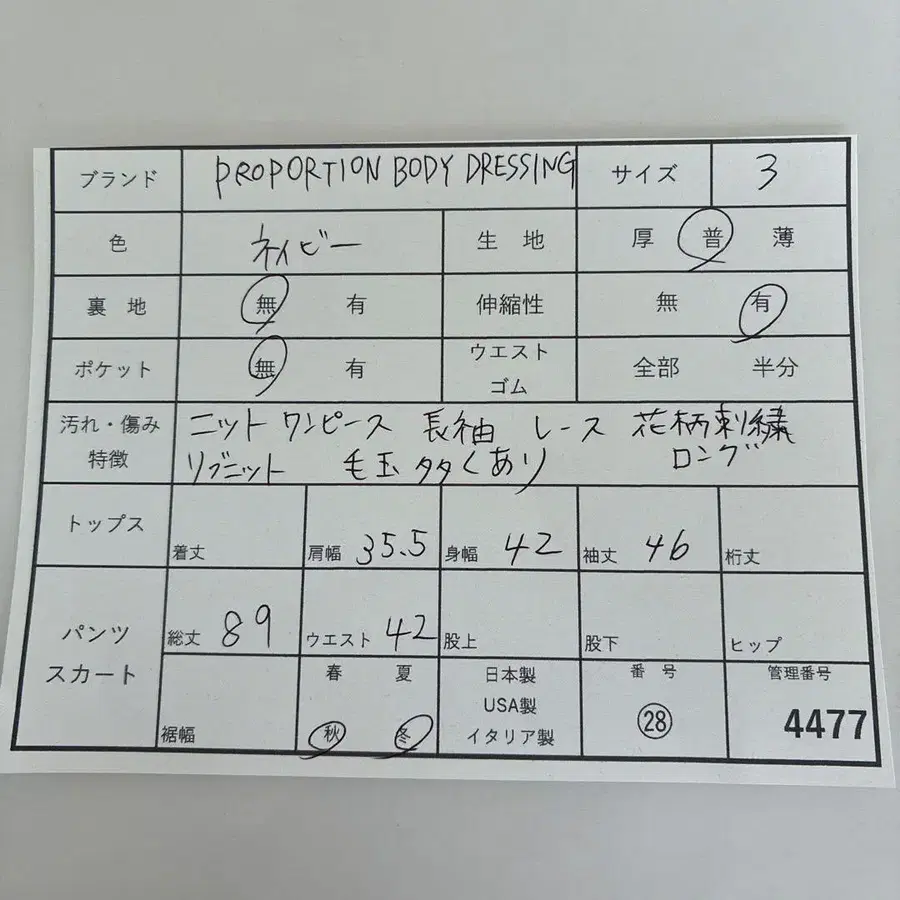 ブランド PROPORTION BODY DRESSING サイズ 3
色 ネイビー 生 地 厚 普 薄
裏 地 無 有 伸縮性 無 有
ポケット 無 有 ウエスト ゴム 全部 半分
汚れ・傷み 特徴 ニット ワンピース 長袖 レース 花柄刺繍
リブニット 毛玉多くあり ロング
トップス 着丈 肩幅 35.5 身幅 42 袖丈 46 桁丈
パンツ スカート 総丈 89 ウエスト 42 股上 股下 ヒップ
裾幅 春 夏 秋 冬 日本製 USA製 イタリア製 番 号 ㉘ 管理番号 4477